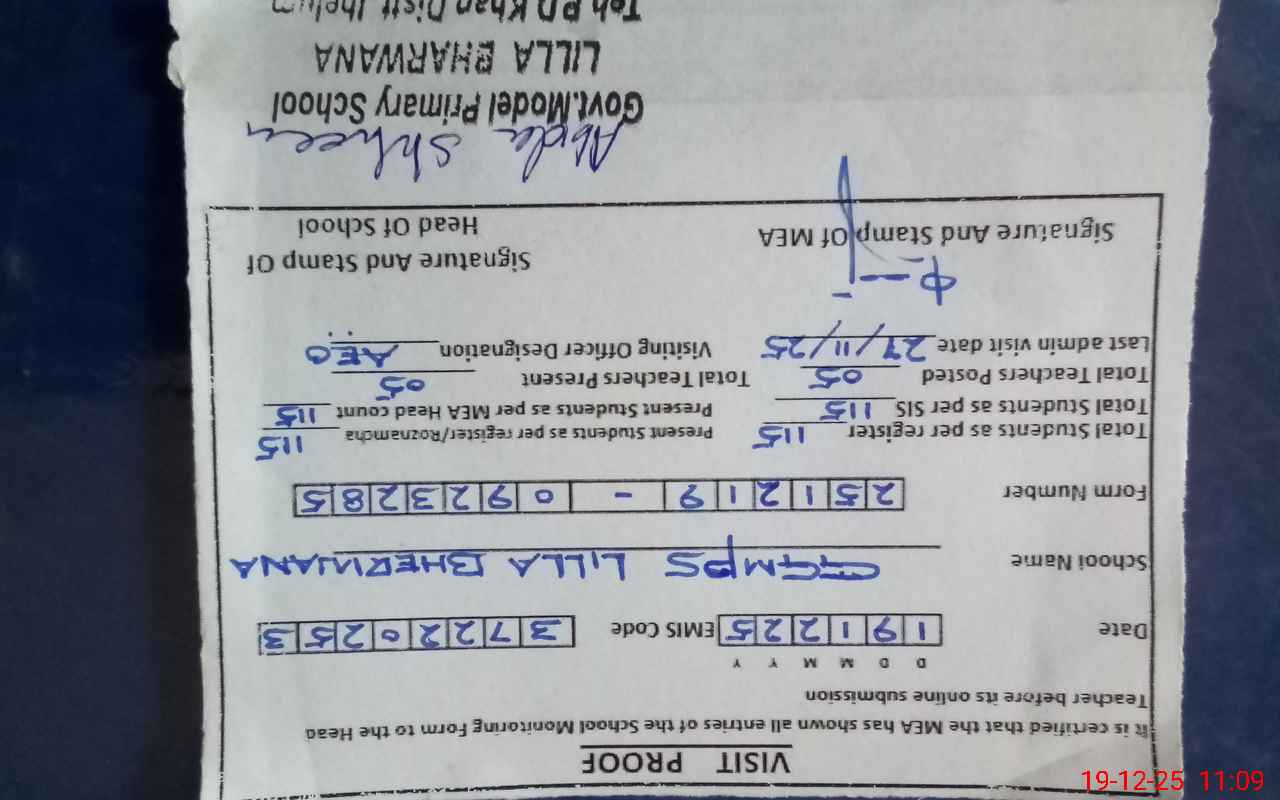 VISIT PROOF
It is certified that the MEA has shown all entries of the School Monitoring Form to the Head
Teacher before its online submission
D D M M Y Y
Date 191225 EMIS Code 37220253
School Name GGMPS LILLA BHERWANA
Form Number 251219-0923285
Total Students as per register 115 Present Students as per register/Roznamcha 115
Total Students as per SIS 115 Present Students as per MEA Head count 115
Total Teachers Posted 05 Total Teachers Present 05
Last admin visit date 27/11/25 Visiting Officer Designation AEO
Signature And Stamp Of MEA Signature And Stamp Of
Head Of School
Govt.Model Primary School
LILLA BHARWANA
Teh P.D Khan Distt Jhelum
19-12-25 11:09